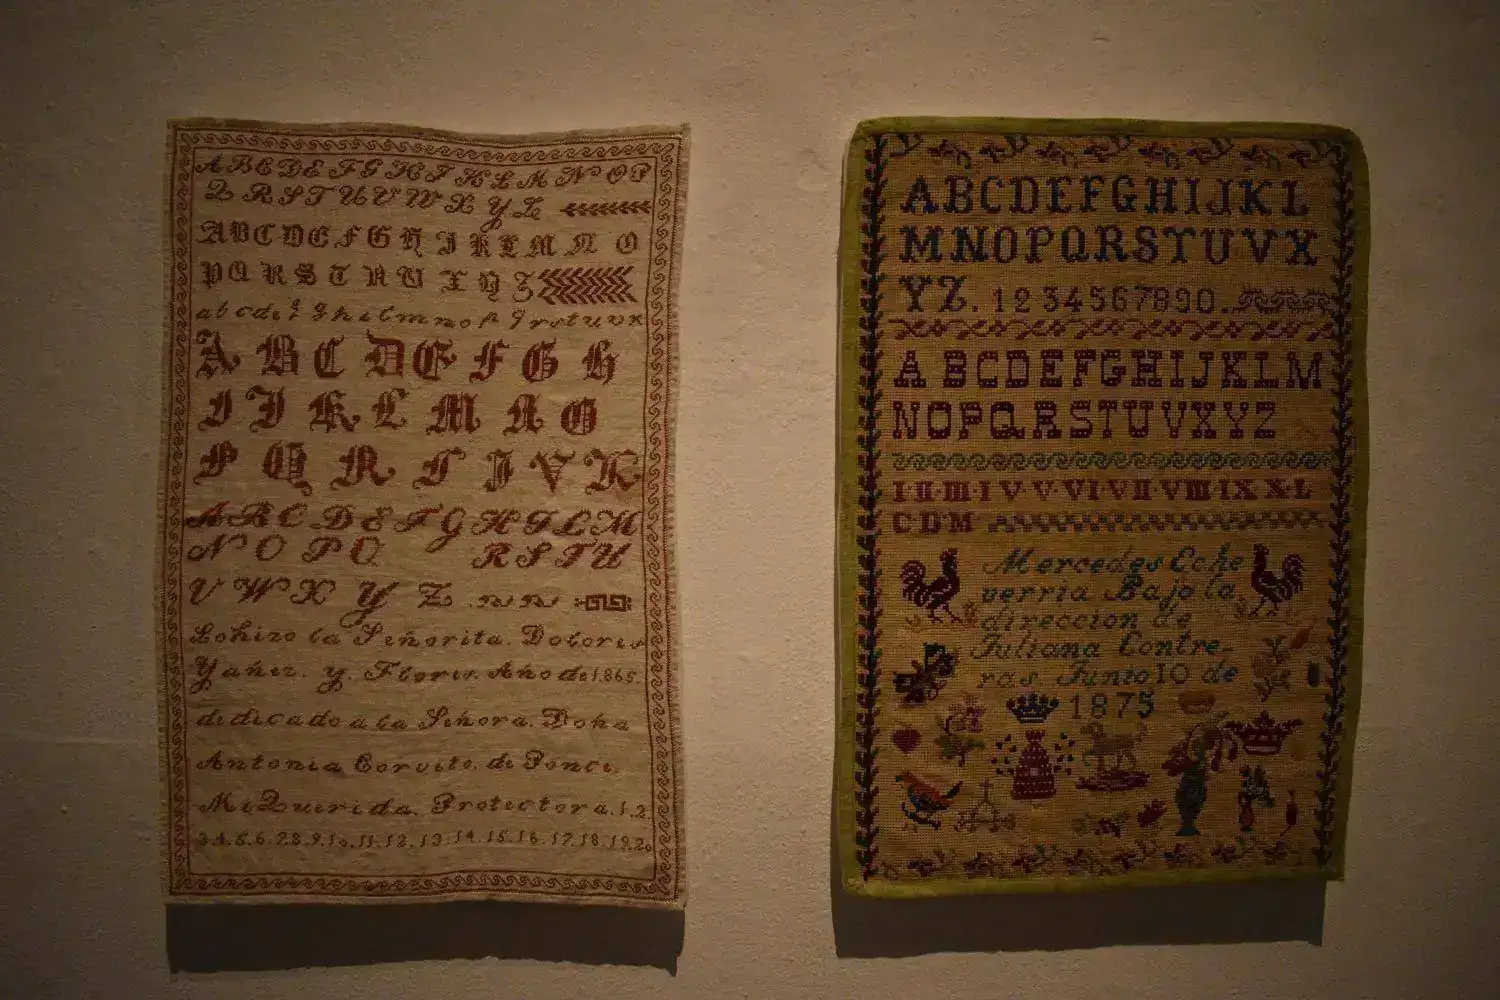 A B C D E F G H I K L M N O P
Q R S T U V W X Y Z
A B C D E F G H I K L M N O
P Q R S T U V X Y Z
a b c d e f g h i l m n o p q r s t u v x
A B C D E F G H
I J K L M N O
P Q R S T V X
A B C D E F G H I L M
N O P Q R S T U
V W X Y Z
Lo hizo la Señorita. Dolores
Yañez. y. Flores. Año de 1865.
dedicado a la Señora. Doña
Antonia de Ponce.
Mi Querida. Protectora. 1. 2.
3. 4. 5. 6. 7. 8. 9. 10. 11. 12. 13. 14. 15. 16. 17. 18. 19. 20
ABCDEFGHIJKL
MNOPQRSTUVX
YZ. 1234567890.
ABCDEFGHIJKLM
NOPQRSTUVXYZ
I·II·III·IV·V·VI·VII·VIII·IX·X·L
C·D·M
Mercedes Eche
verria Bajo la
direccion de
Juliana Contre-
ras. Junio 10 de
1875